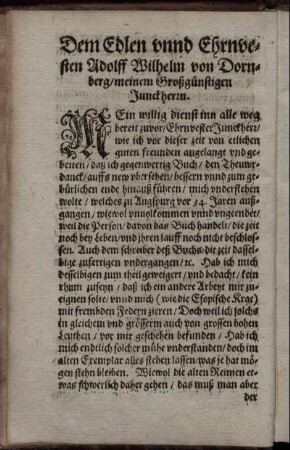 Dem Edlen vnnd Ehrnve-
sten Adolff Wilhelm von Dorn-
berg/meinem Großgünstigen
Junckherrn.
MEin willig dienst inn alle weg
bereit zuvor/Ehrnvester Junckherr/
wie ich vor dieser zeit von etlichen
guten freunden angelangt vnd ge-
betten/daß ich gegenwertig Buch/den Theuwr-
danck/auffs new vbersehen/bessern vnnd zum ge-
bürlichen ende hinauß führen/mich vnderstehen
wolte/welches zu Augspurg vor 34. Jaren auß-
gangen/wiewol vnuolkommen vnnd vngeendet/
weil die Person/davon das Buch handelt/die zeit
noch bey leben/vnd jhren lauff noch nicht beschlos-
sen. Auch dem schreiber deß Buchs/die zeit dassel-
bige zufertigen vndergangen/ꝛc. Hab ich mich
desselbigen zum theil geweigert/vnd bedacht/kein
rhum zuseyn/daß ich ein andere Arbeyt mir zu-
eignen solte/vnnd mich (wie die Esopische Krae)
mit frembden Federn zieren/Doch weil ich solchs
in gleichem vnd grösserm auch von grossen hohen
Leuthen/vor mir geschehen befunden/Hab ich
mich endtlich solcher mühe vnderstanden/doch im
alten Exemplar alles stehen lassen/was je hat mö-
gen stehn bleiben. Wiewol die alten Reimen et-
was schwerlich daher gehen/das muß man aber
der